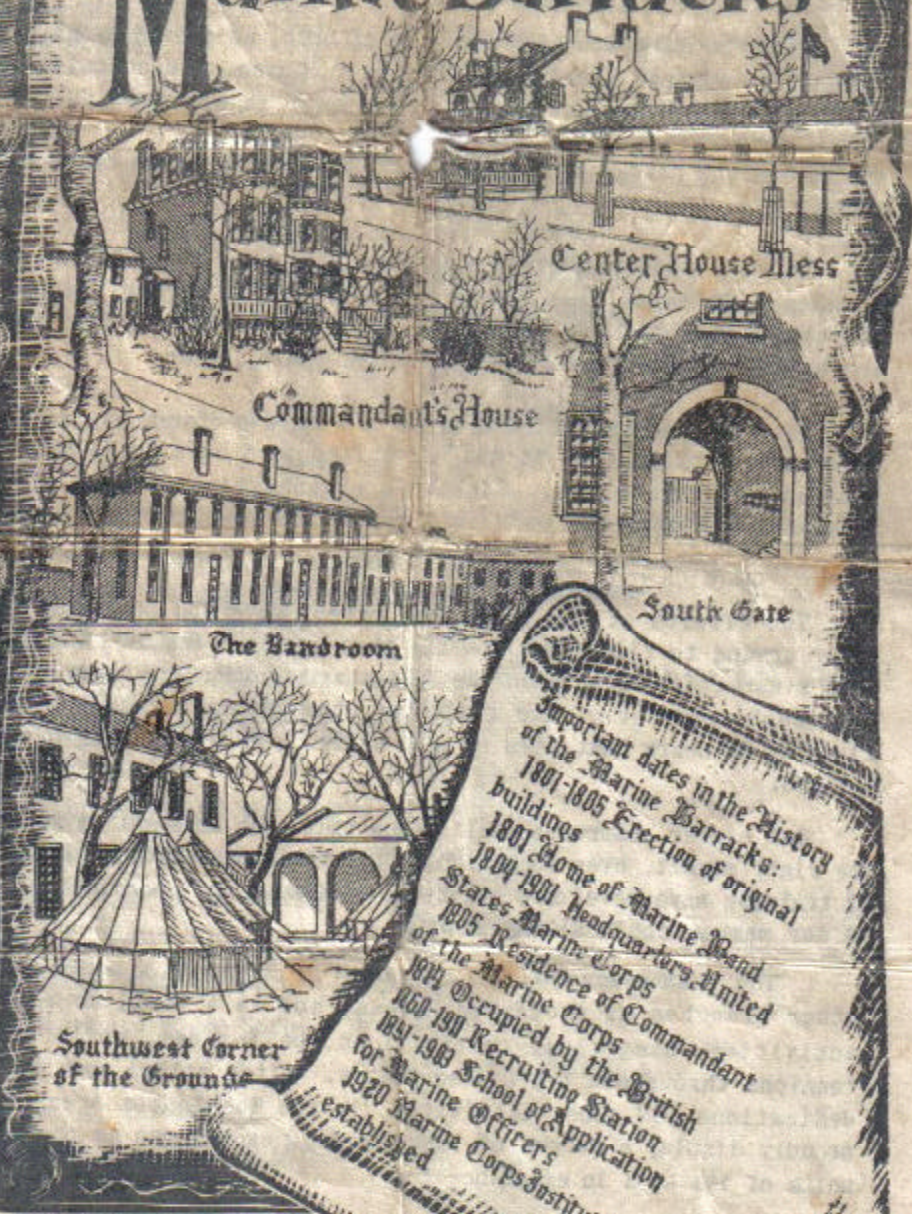 Marine Barracks
Center House Mess
Commandant's House
South Gate
The Bandroom
Southwest Corner
of the Grounds
Important dates in the History
of the Marine Barracks:
1801-1805 Erection of original
buildings
1801 Home of Marine Band
1804-1901 Headquarters, United
States Marine Corps
1805 Residence of Commandant
of the Marine Corps
1814 Occupied by the British
1860-1911 Recruiting Station
1891-1903 School of Application
for Marine Officers
1920 Marine Corps Institu
established